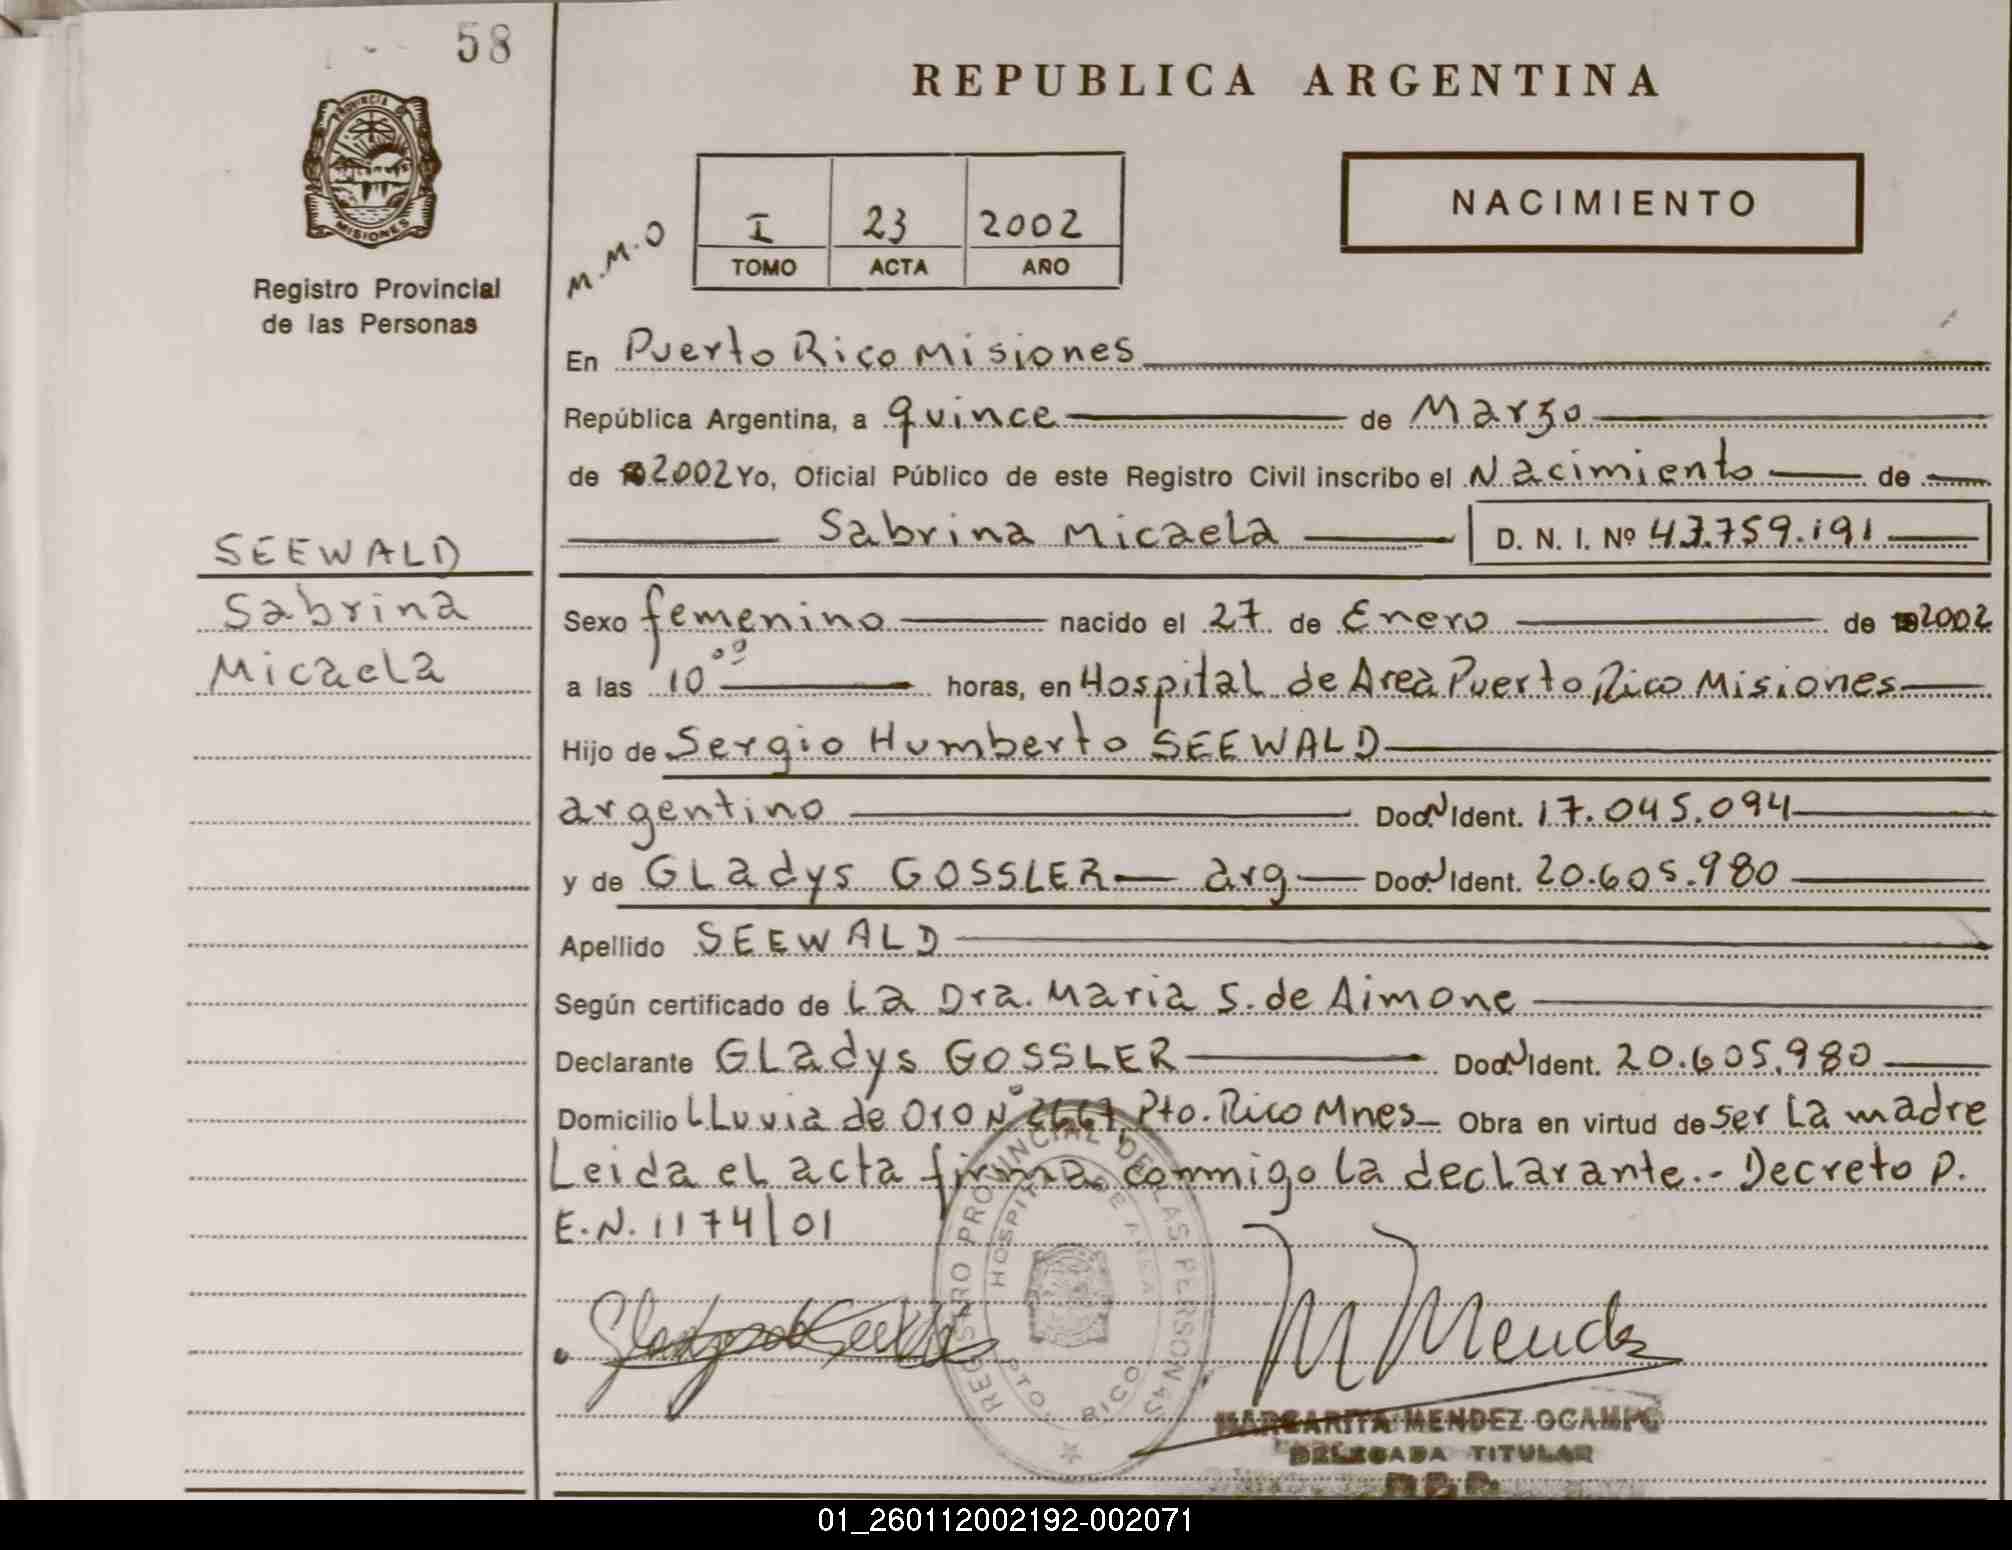 58
REPUBLICA ARGENTINA
PROVINCIA DE MISIONES
Registro Provincial
de las Personas
M.M.O
I 23 2002
TOMO ACTA AÑO
NACIMIENTO
En Puerto Rico Misiones
República Argentina, a quince de Marzo
de 2002 Yo, Oficial Público de este Registro Civil inscribo el Nacimiento de
Sabrina Micaela D. N. I. Nº 43.759.191
SEEWALD
Sabrina
Micaela
Sexo femenino nacido el 27 de Enero de 2002
a las 10ºº horas, en Hospital de Area Puerto Rico Misiones
Hijo de Sergio Humberto SEEWALD
argentino Doc. N Ident. 17.045.094
y de Gladys GOSSLER arg Doc. N Ident. 20.605.980
Apellido SEEWALD
Según certificado de La Dra. Maria S. de Aimone
Declarante Gladys GOSSLER Doc. N Ident. 20.605.980
Domicilio Lluvia de Oro Nº Pto. Rico Mnes Obra en virtud de ser la madre
Leida el acta firma conmigo la declarante.- Decreto P.
E.N. 1174/01
REGISTRO PROVINCIAL DE LAS PERSONAS
HOSPITAL DE AREA
PTO. RICO
M Mendez
MARGARITA MENDEZ OCAMPO
DELEGADA TITULAR
01_260112002192-002071